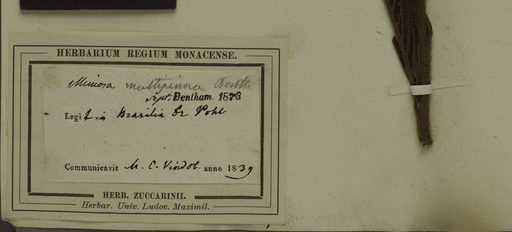 HERBARIUM REGIUM MONACENSE.
Mimosa multipinna Benth
det. Bentham. 1873
Legit in Brasilia Dr Pohl
Communicavit M. C. Vindob. anno 1839
HERB. ZUCCARINII.
Herbar. Univ. Ludov. Maximil.